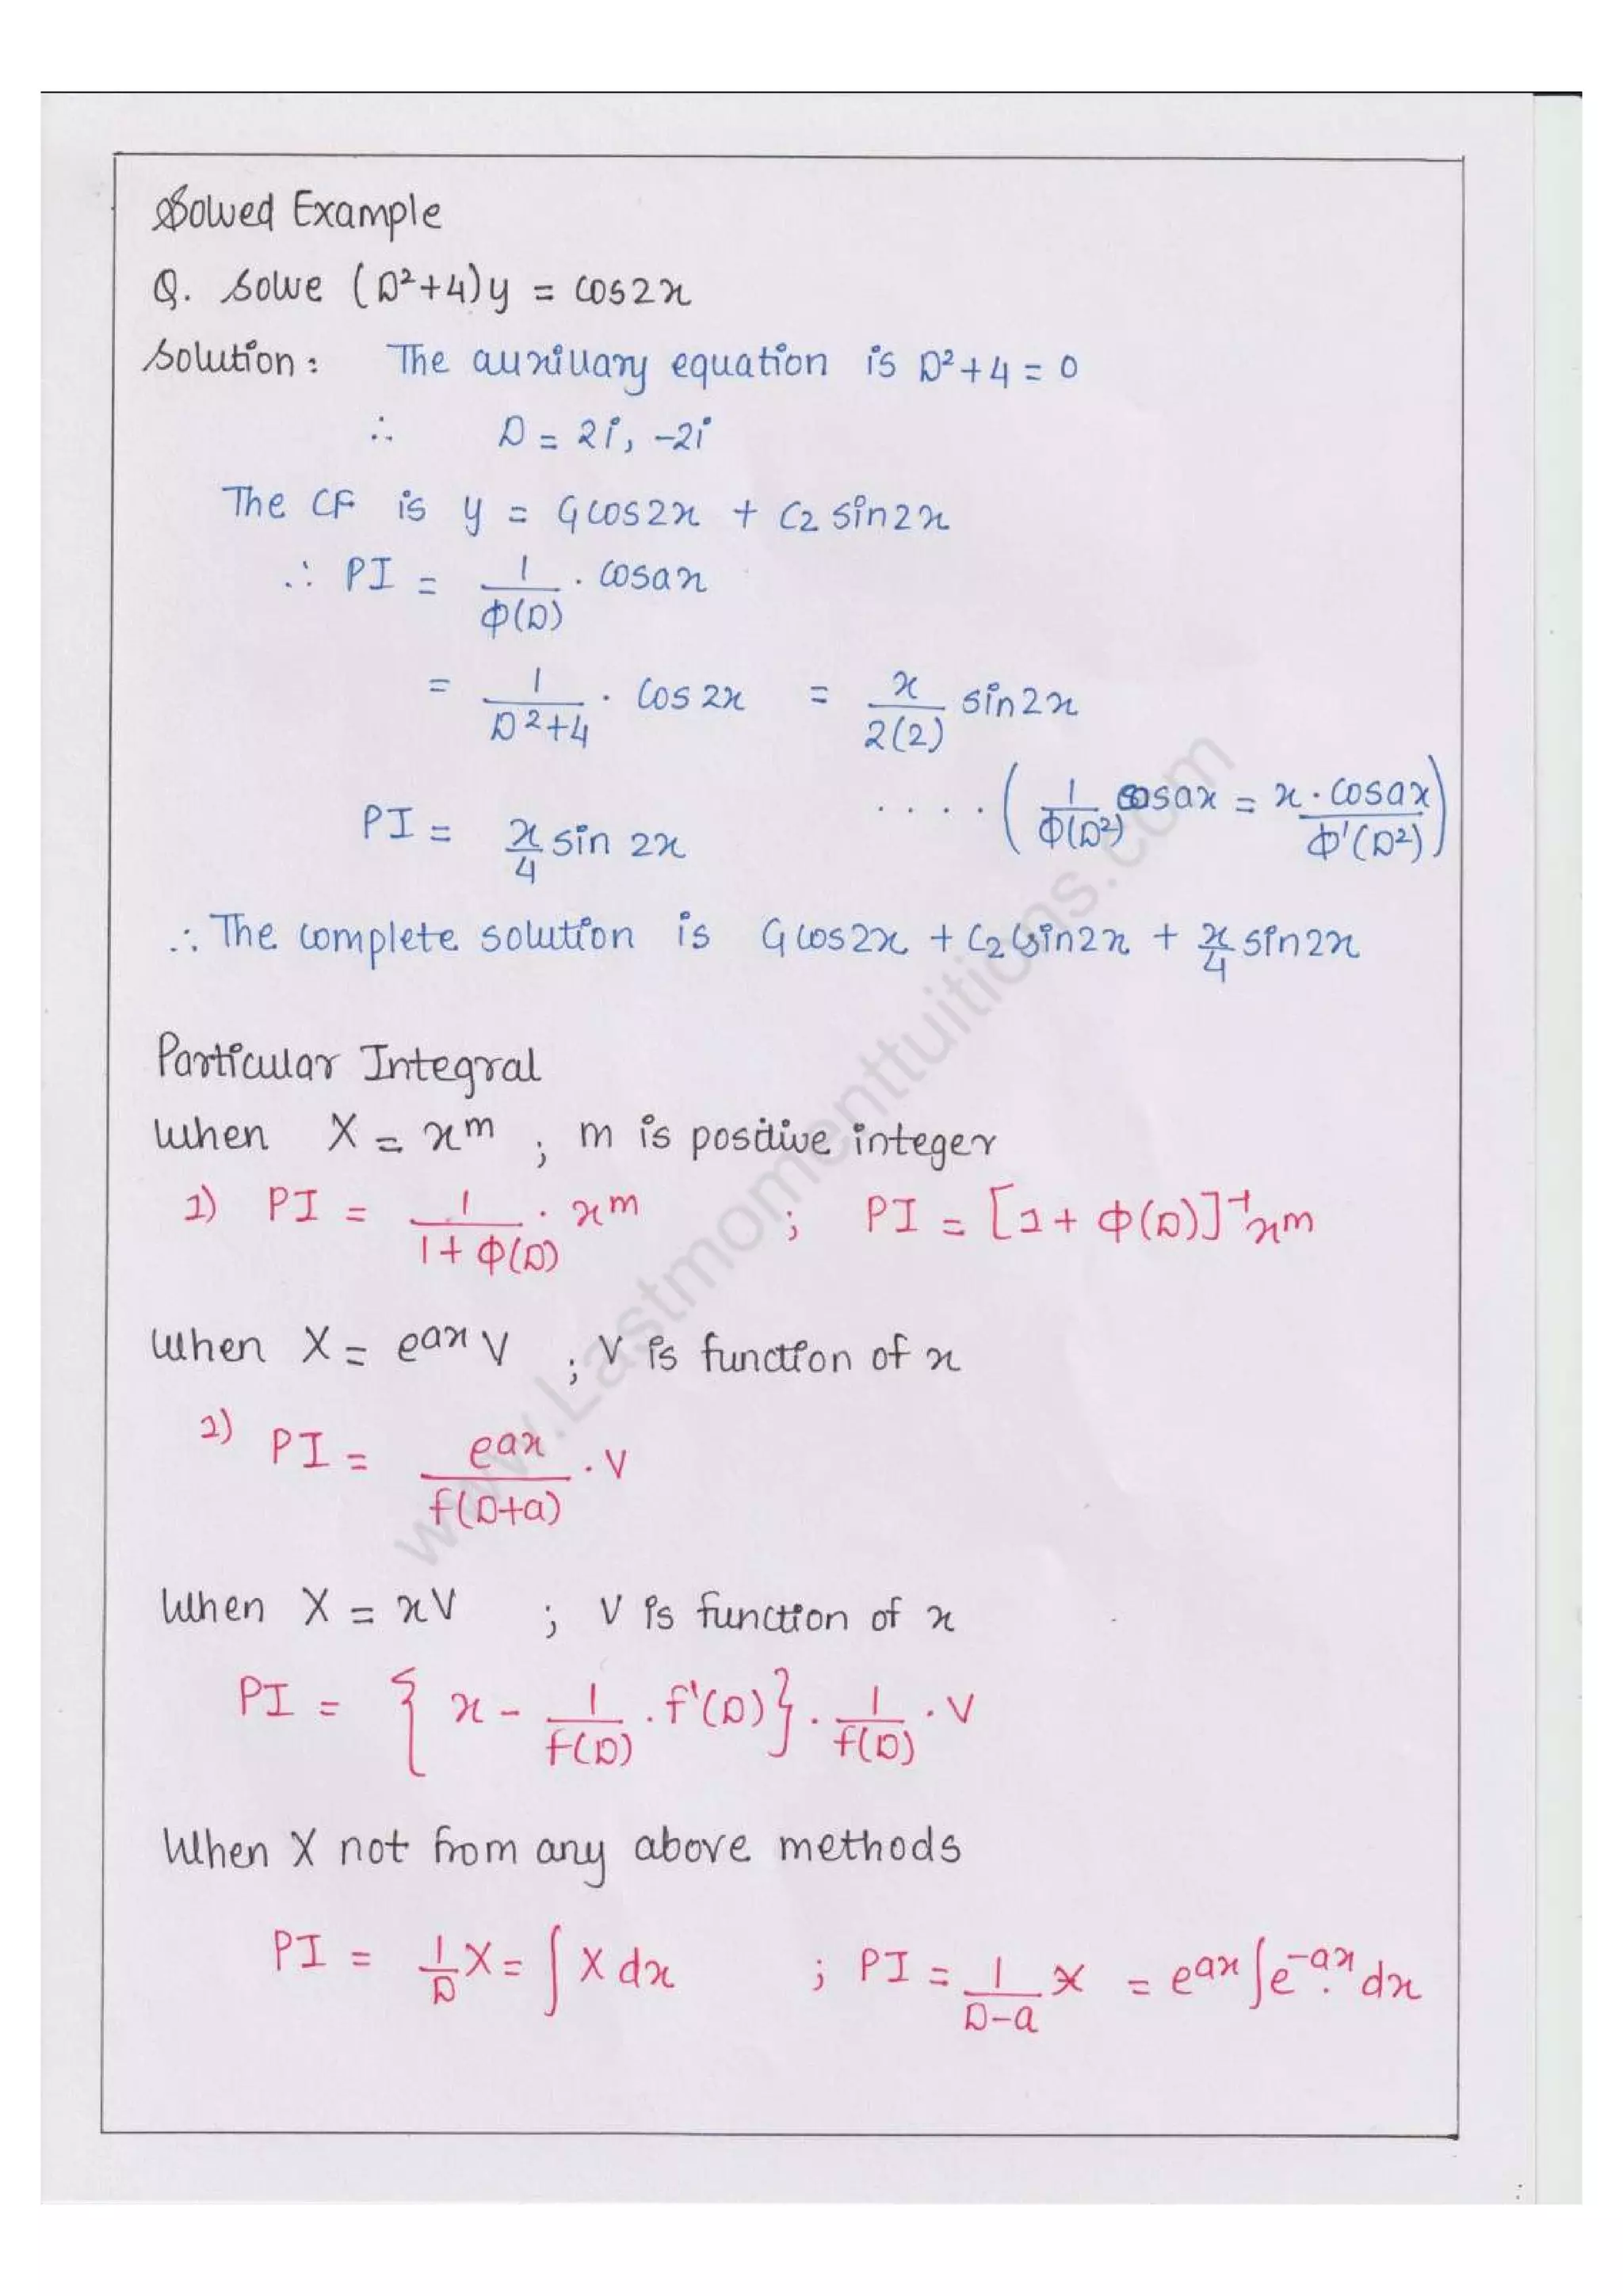 Solved Example
Q. Solve (D²+4)y = cos2x
Solution: The auxiliary equation is D²+4 = 0
∴ D = 2i, -2i
The CF is y = C₁cos2x + C₂ sin2x
∴ PI = 1/Φ(D) · cosax
= 1/(D²+4) · cos 2x = x/2(2) sin2x
PI = x/4 sin 2x ....( 1/Φ(D²) cosax = x·cosax/Φ'(D²) )
∴ The complete solution is C₁cos2x + C₂sin2x + x/4 sin2x
Particular Integral
When X = xᵐ ; m is positive integer
1) PI = 1/(1+Φ(D)) · xᵐ ; PI = [1+ Φ(D)]⁻¹xᵐ
When X = eᵃˣ V ; V is function of x
2) PI = eᵃˣ/f(D+a) · V
When X = xV ; V is function of x
PI = { x - 1/f(D) · f'(D)} · 1/f(D) · V
When X not from any above methods
PI = 1/D X = ∫ X dx ; PI = 1/(D-a) X = eᵃˣ ∫e⁻ᵃˣ· dx
www.Lastmomenttuitions.com